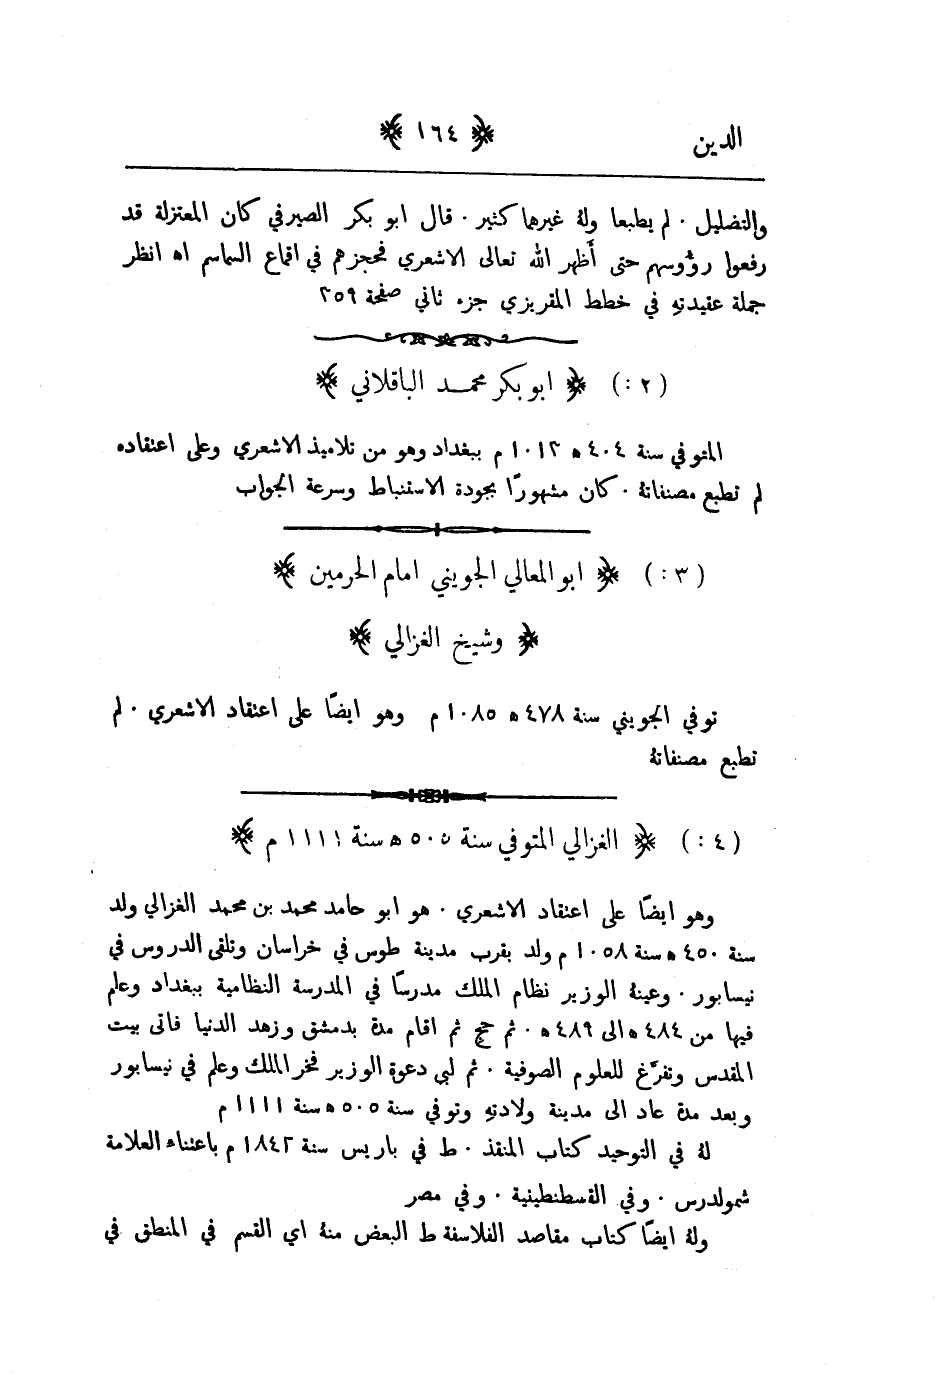 الدين ﴿ ١٦٤ ﴾
والتضليل . لم يطبعا ولهُ غيرهما كثير . قال ابو بكر الصيرفي كان المعتزلة قد
رفعوا رؤوسهم حتى أظهر الله تعالى الاشعري فحجزهم في اقماع السماسم اه انظر
جملة عقيدتهِ في خطط المقريزي جزء ثاني صفحة ٣٥٩
( ٢ : ) ﴿ ابو بكر محمد الباقلاني ﴾
المتوفي سنة ٤٠٤ ه ١٠١٣ م ببغداد وهو من تلاميذ الاشعري وعلى اعتقاده
لم تطبع مصنفاتهُ . كان مشهورًا بجودة الاستنباط وسرعة الجواب
( ٣ : ) ﴿ ابو المعالي الجويني امام الحرمين ﴾
﴿ وشيخ الغزالي ﴾
توفي الجويني سنة ٤٧٨ ه ١٠٨٥ م وهو ايضًا على اعتقاد الاشعري . لم
تطبع مصنفاتهُ
( ٤ : ) ﴿ الغزالي المتوفي سنة ٥٠٥ ه سنة ١١١١ م ﴾
وهو ايضًا على اعتقاد الاشعري . هو ابو حامد محمد بن محمد الغزالي ولد
سنة ٤٥٠ ه سنة ١٠٥٨ م ولد بقرب مدينة طوس في خراسان وتلقى الدروس في
نيسابور . وعينهُ الوزير نظام الملك مدرسًا في المدرسة النظامية ببغداد وعلم
فيها من ٤٨٤ ه الى ٤٨٩ ه . ثم حج ثم اقام مدة بدمشق وزهد الدنيا فاتى بيت
المقدس وتفرَّغ للعلوم الصوفية . ثم لبى دعوة الوزير فخر الملك وعلم في نيسابور
وبعد مدة عاد الى مدينة ولادتهِ وتوفي سنة ٥٠٥ ه سنة ١١١١ م
لهُ في التوحيد كتاب المنقذ . ط في باريس سنة ١٨٤٢ م باعتناء العلامة
شمولدرس . وفي القسطنطينية . وفي مصر
ولهُ ايضًا كتاب مقاصد الفلاسفة ط البعض منهُ اي القسم في المنطق في